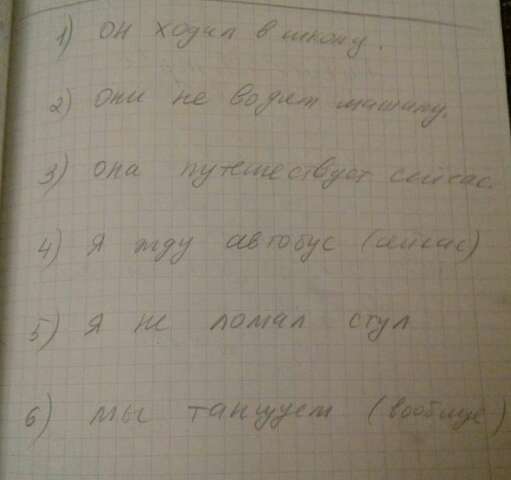 1) он ходил в школу.
2) они не водят машину.
3) она путешествует сейчас.
4) я жду автобус (сейчас)
5) я не ломал стул
6) мы танцуем (вообще)